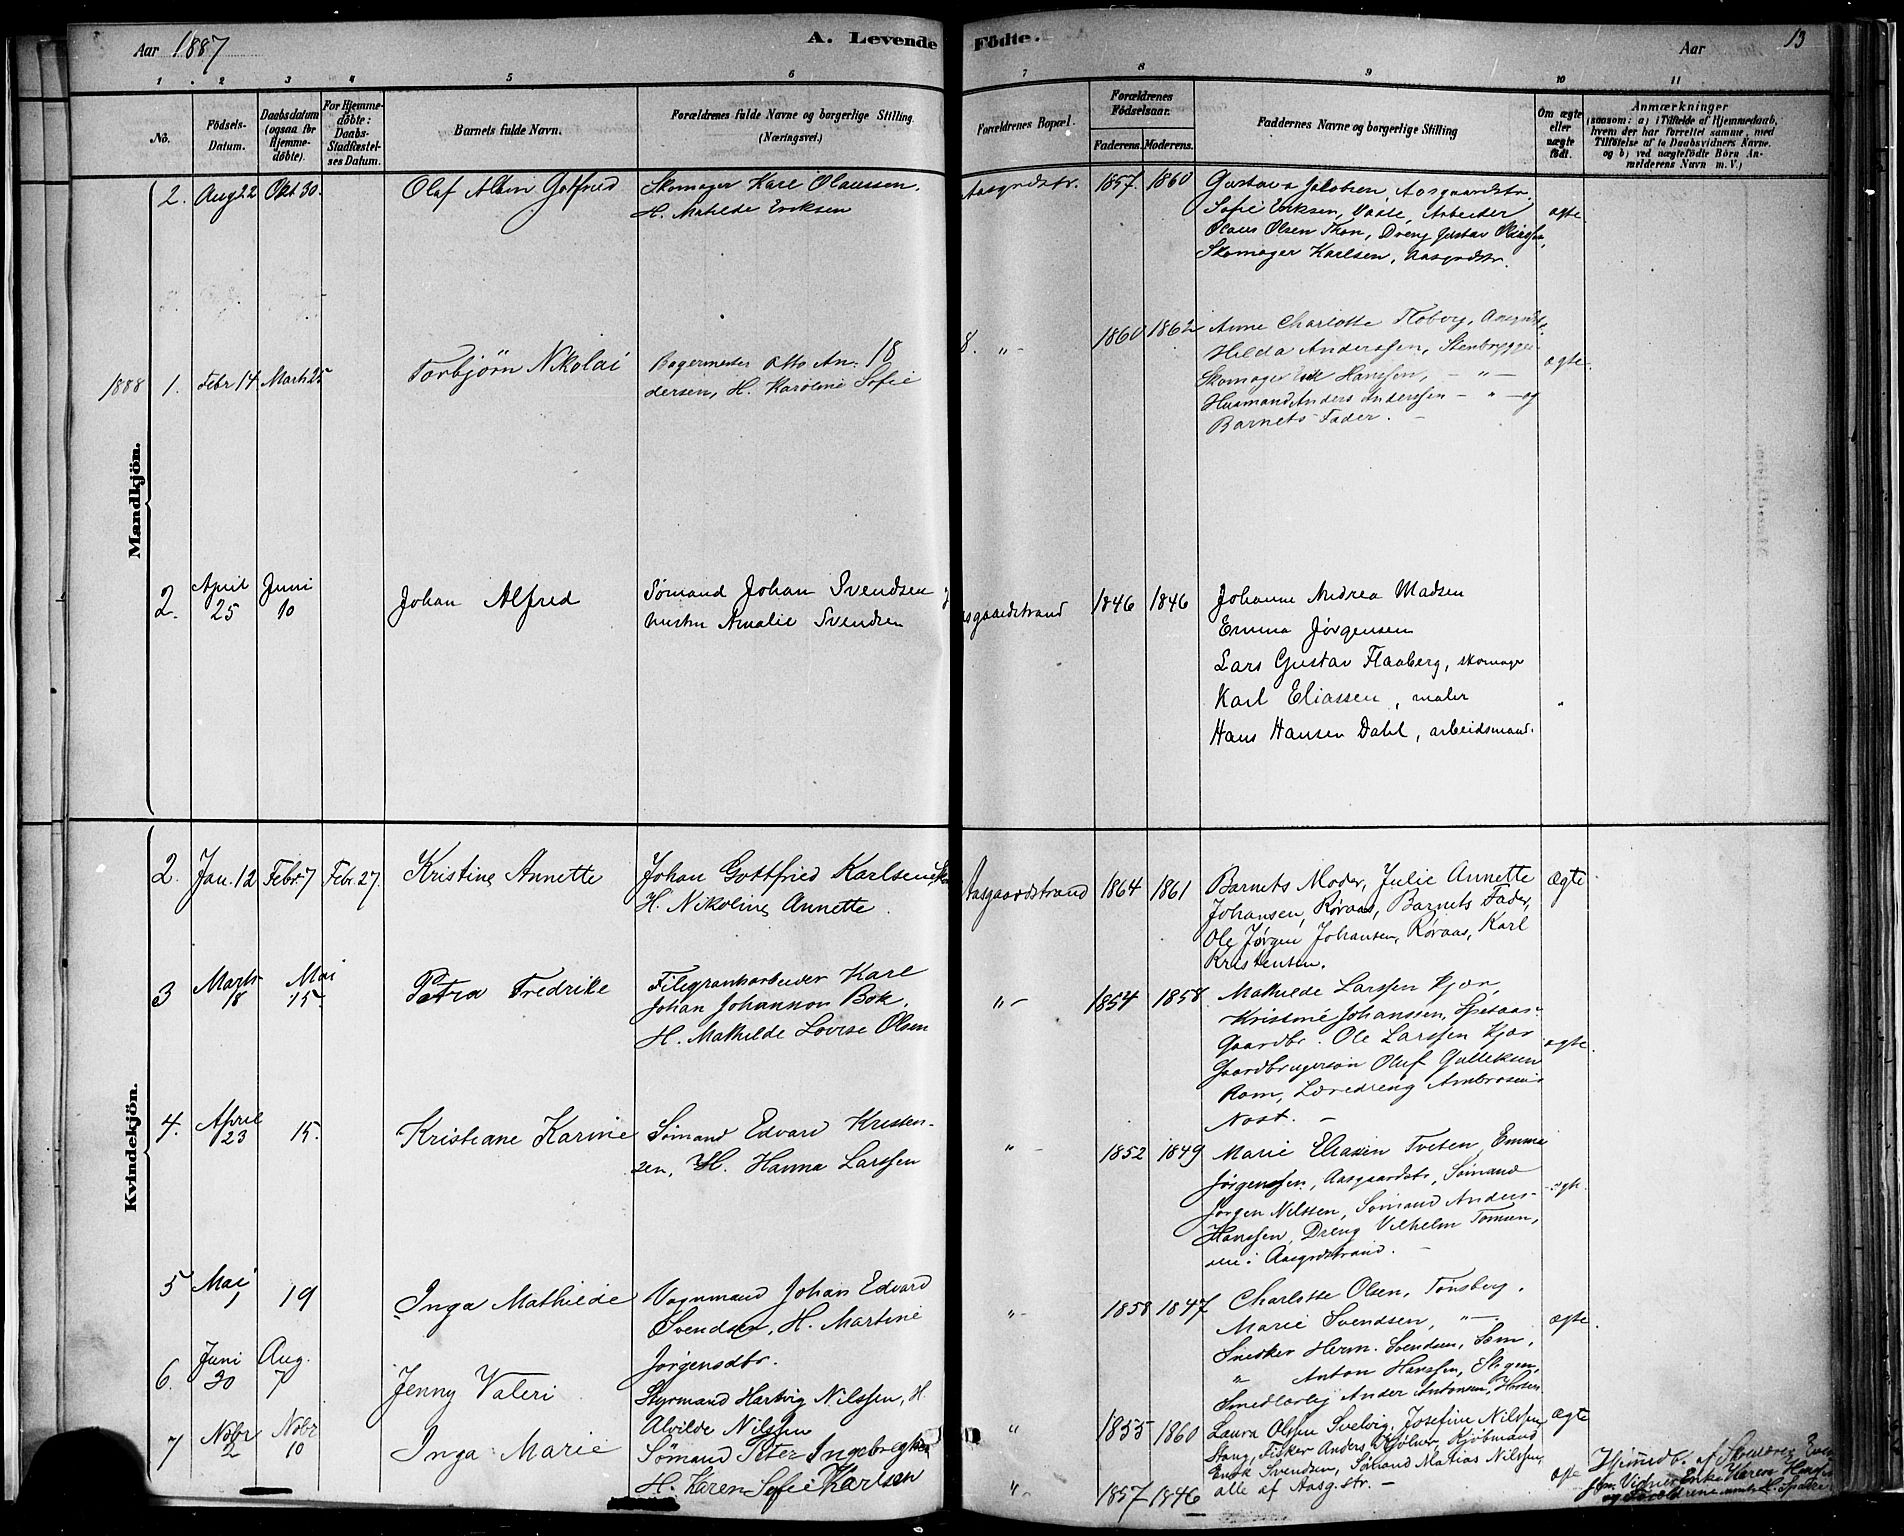 Aar 1887 A. Levende Födte. Aar 13
1 2 3 4 5 6 7 8 9 10 11
No.
Födsels-Datum.
Daabsdatum (ogsaa for Hjemme-döbte).
For Hjemme-döbte: Daabs-Stadfæstel-ses Datum.
Barnets fulde Navn.
Forældrenes fulde Navne og borgerlige Stilling.
(Næringsvei.)
Forældrenes Bopæl.
Forældrenes Födselsaar.
Faderens. Moderens.
Faddernes Navne og borgerlige Stilling
Om ægte eller uægte födt.
Anmærkninger
(saasom: a) i Tilfælde af Hjemmedaab,
hvem der har forrettet samme, med
Tilföielse af to Daabsvidners Navne.
og b) ved uægtefödte Börn An-
melderens Navn m. V.)
Mandkjön.
2. Aug 22 Okt 30. Olaf Albin Gotfried
Skomager Karl Olaussen.
H. Matilde Eriksen
Aasgrdstr. 1857. 1860
Gustava Jakobsen, Aasgaardstr.
Sofie Eriksen, Vaale, Arbeider
Olaus Olsen Thon, Dreng Gustav
Skomager Karlsen, Aasgrdstr.
ægte
1888 1. Febr 14 Marti 25 Torbjørn Nikolai
Bagermester Otto An-
dersen, H. Karoline Sofie
18
8. "- 1860 1862
Anne Charlotte Floberg,
Hilda Anderssen,
Skomager Hanssen, - " -
Husmand Anders Anderssen - " - og
Barnets Fader. -
ægte.
2. April 25 Juni 10 Johan Alfred
Sømand Johan Svendsen
hustru Amalie Svendsen
Aasgaardstrand 1846 1846
Johanne Andrea Madsen
Emma Jørgensen
Lars Gustav Flaaberg, skomager
Karl Eliassen, maler
Hans Hansen Dahl, arbeidsmand.
"
Kvindekjön.
2. Jan. 12 Febr. 7 Febr. 27. Kristine Annette
Johan Gottfried Karlsen
H. Nikoline Annette.
Aasgaardstrand 1864 1861
Barnets Moder, Julie Annette
Johansen, Røraas, Barnets Fader,
Ole Jørgen Johansen, Røraas, Karl
Kristensen.
Ægte
3 Marts 18 Mai 15. Petra Fredrike
Filigranharbeider Karl
Johan Johannson Bok,
H. Mathilde Lovise Olsen
"- 1854 1858
Mathilde Larssen Kjær,
Kristine Johanssen,
Gaardbr. Ole Larssen Kjær
Gaardbrugersøn Oluf Gulleksen
Rom, Læredreng Ambrosius
Nost. -
ægte.
4. April 23 15. Kristiane Karine
Sømand Edvard Kristen-
sen, H. Hanna Larssen
" - 1852 1849
Marie Eliasen Tveten, Emma
Jørgenssen, Aasgaardstr, Sømand
Jørgen Nilssen, Sømand Anders
Hanssen, Dreng Vilhelm Tomsen,
alle i Aasgrdstrand. -
5 Mai 1 19 Inga Mathilde
Vognmand Johan Edvard
Svendsen, H. Martine
Jørgensdtr.
"- 1858 1847
Charlotte Olsen, Tønsberg,
Marie Svendsen, "-
Snedker Herm. Svendsen, Sem,
" Anton Hanssen,
Ander Antonsen,
ægte.
6. Juni 20 Aug. 7 Jenny Valeri
Styrmand Hartvig Nilssen, H.
Alvilde Nilssen
" 1855 1860
Laura Olssen Svelvig, Josefine Nilssen
Stang, Fisker Anders Kjølner, Kjøbmand
Enok Svendsen, Sømand Matias Nilssen,
alle af Aasg.str. -
Ægte
7 Nobr 2 Nobr 10 Inga Marie
Sømand Peter Ingebregtsen
H. Karen Sofie Karlsen
"- 1857 1846
ægte
Hjemmedb. af
Vidner Enke Karen
og Forældrene